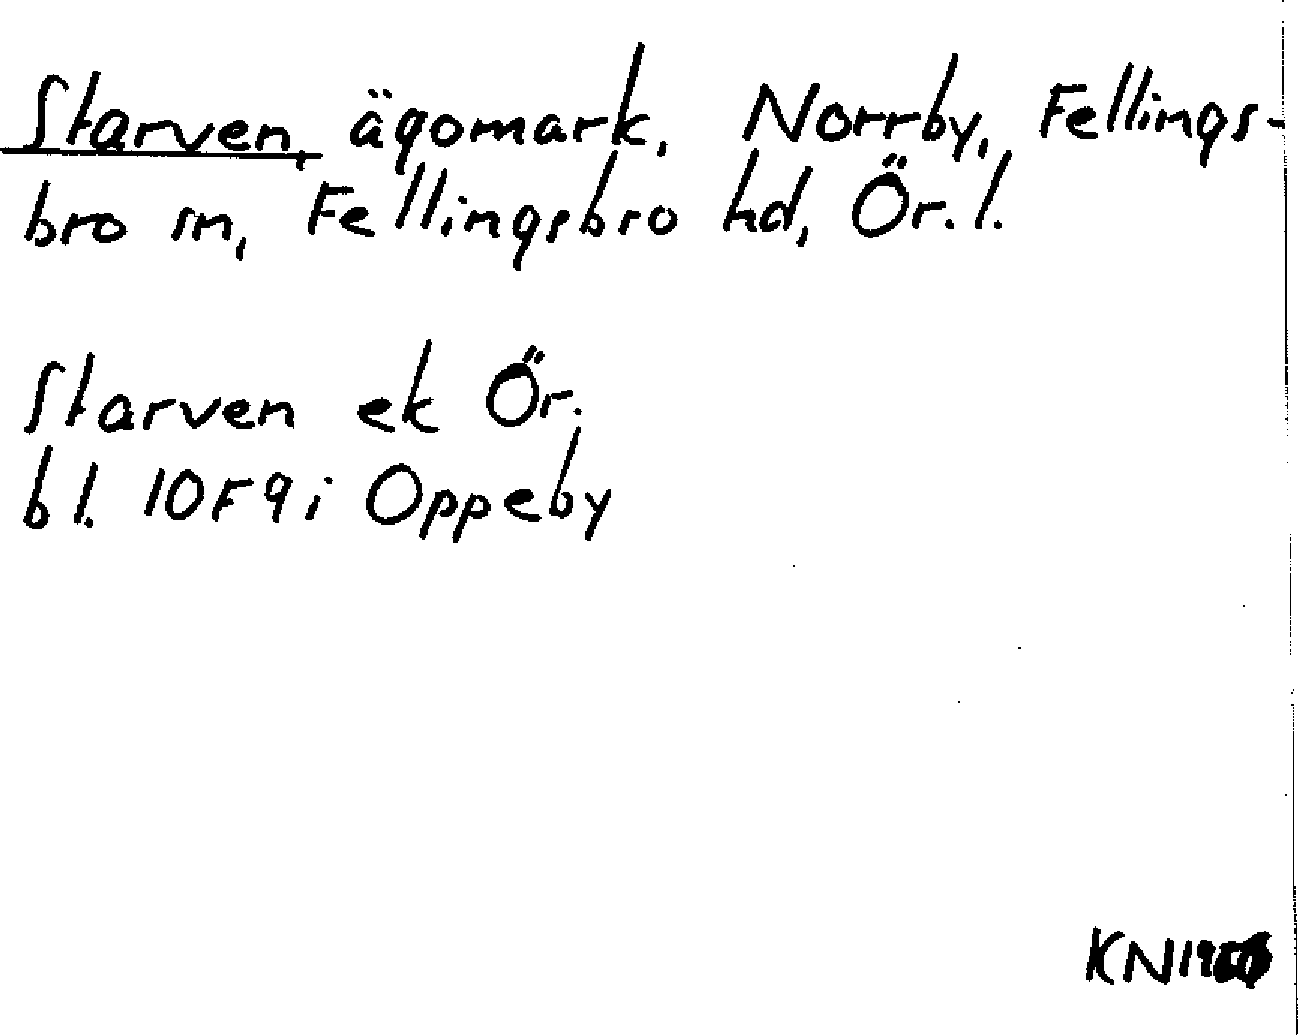 Starven, ägomark, Norrby, Fellings-
bro sn, Fellingsbro hd, Ör. l.
Starven ek Ör.
bl. 10F9i Oppeby
KN